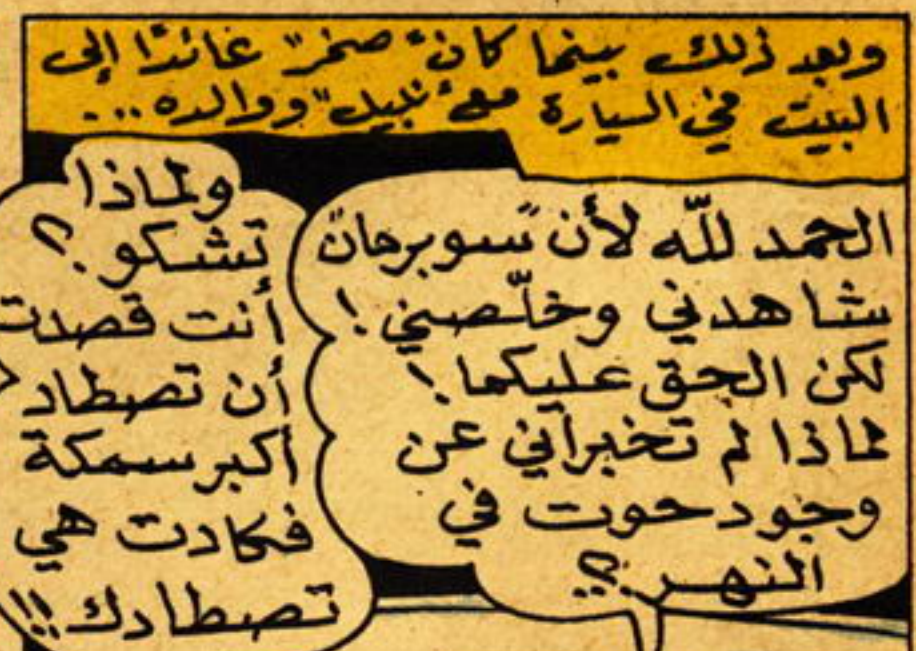 وبعد ذلك بينما كان "صخر" عائدًا إلى
البيت في السيارة مع "نبيل" ووالده ...
الحمد للّه لأن "سوبرمان"
شاهدني وخلّصني !
لكن الحق عليكما !
لماذا لم تخبراني عن
وجود حوت في
النهر ؟!
ولماذا
تشكو ؟
أنت قصدت
أن تصطاد
أكبر سمكة
فكادت هي
تصطادك !!